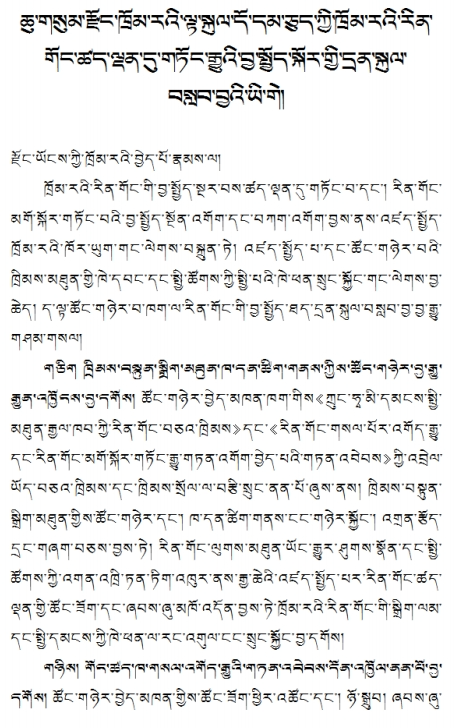 ཆུ་གསུམ་རྫོང་ཁྲོམ་རའི་ལྟ་སྐུལ་དོ་དམ་ཅུད་ཀྱི་ཁྲོམ་རའི་རིན་
གོང་ཚད་ལྡན་དུ་གཏོང་རྒྱུའི་བྱ་སྤྱོད་སྐོར་གྱི་དྲན་སྐུལ་
བསླབ་བྱའི་ཡི་གེ།
རྫོང་ཡོངས་ཀྱི་ཁྲོམ་རའི་བྱེད་པོ་རྣམས་ལ།
ཁྲོམ་རའི་རིན་གོང་གི་བྱ་སྤྱོད་སྔར་བས་ཚད་ལྡན་དུ་གཏོང་བ་དང་། རིན་གོང་
མགོ་སྐོར་གཏོང་བའི་བྱ་སྤྱོད་སྔོན་འགོག་དང་བཀག་འགོག་བྱས་ནས་འཛད་སྤྱོད་
ཁྲོམ་རའི་ཁོར་ཡུག་གང་ལེགས་བསྐྲུན་ཏེ། འཛད་སྤྱོད་པ་དང་ཚོང་གཉེར་བའི་
ཁྲིམས་མཐུན་གྱི་ཁེ་དབང་དང་སྤྱི་ཚོགས་ཀྱི་སྤྱི་པའི་ཁེ་ཕན་སྲུང་སྐྱོང་གང་ལེགས་བྱ་
ཆེད། ད་ལྟ་ཚོང་གཉེར་བ་ཁག་ལ་རིན་གོང་གི་བྱ་སྤྱོད་ཐད་དྲན་སྐུལ་བསླབ་བྱ་བྱ་རྒྱུ་
གཤམ་གསལ།
གཅིག ཁྲིམས་བསྟུན་སྒྲིག་མཐུན་ཁ་དན་ཚིག་གནས་ཀྱིས་ཚོང་གཉེར་བྱ་རྒྱུ་
རྒྱུན་འཁྱོངས་བྱ་དགོས། ཚོང་གཉེར་བྱེད་མཁན་ཁག་གིས《ཀྲུང་ཧྭ་མི་དམངས་སྤྱི་
མཐུན་རྒྱལ་ཁབ་ཀྱི་རིན་གོང་བཅའ་ཁྲིམས》དང་《རིན་གོང་གསལ་པོར་འགོད་རྒྱུ་
དང་རིན་གོང་མགོ་སྐོར་གཏོང་རྒྱུ་གཏན་འགོག་བྱེད་པའི་གཏན་འབེབས》ཀྱི་འབྲེལ་
ཡོད་བཅའ་ཁྲིམས་དང་ཁྲིམས་སྲོལ་ལ་བརྩི་སྲུང་ནན་པོ་ཞུས་ནས། ཁྲིམས་བསྟུན་
སྒྲིག་མཐུན་གྱིས་ཚོང་གཉེར་དང་། ཁ་དན་ཚིག་གནས་ངང་གཉེར་སྐྱོང་། འགྲན་རྩོད་
དྲང་གཞག་བཅས་བྱས་ཏེ། རིན་གོང་ལུགས་མཐུན་ཡོང་རྒྱུར་ཤུགས་སྣོན་དང་སྤྱི་
ཚོགས་ཀྱི་འགན་འཁྲི་ཏན་ཏིག་འཁུར་ནས་རྒྱ་ཆེའི་འཛད་སྤྱོད་པར་རིན་གོང་ཚད་
ལྡན་གྱི་ཚོང་ཟོག་དང་ཞབས་ཞུ་མཁོ་འདོན་བྱས་ཏེ་ཁྲོམ་རའི་རིན་གོང་གི་སྒྲིག་ལམ་
དང་སྤྱི་དམངས་ཀྱི་ཁེ་ཕན་ལ་རང་འགུལ་ངང་སྲུང་སྐྱོང་བྱ་དགོས།
གཉིས། གོང་ཚད་ཁ་གསལ་འགོད་རྒྱུའི་གཏན་འབེབས་དོན་འཁྱོལ་ནན་པོ་བྱ་
དགོས། ཚོང་གཉེར་བྱེད་མཁན་གྱིས་ཚོང་ཟོག་ཕྱིར་འཚོང་དང་། ཉོ་སྒྲུབ། ཞབས་ཞུ་